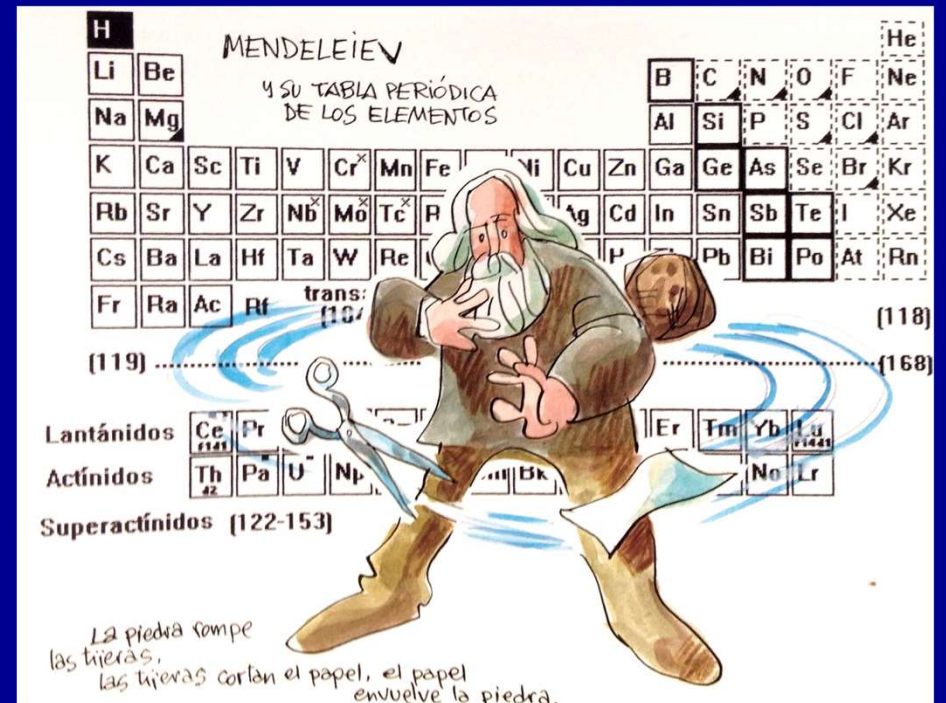 H He
MENDELEiEV
Li Be B C N O F Ne
Y SU TABLA PERIÓDICA
DE LOS ELEMENTOS
Na Mg Al Si P S Cl Ar
K Ca Sc Ti V Cr× Mn Fe Ni Cu Zn Ga Ge As Se Br Kr
Rb Sr Y Zr Nb× Mo× Tc× Ag Cd In Sn Sb Te I Xe
Cs Ba La Hf Ta W Re Pb Bi Po At Rn
Fr Ra Ac Rf trans:
(104 (118)
(119) (168)
Lantánidos Ce Pr Er Tm Yb Lu
Actínidos Th Pa U Np Bk No Lr
Superactínidos (122-153)
La piedra rompe
las tijeras,
las tijeras cortan el papel, el papel
envuelve la piedra.